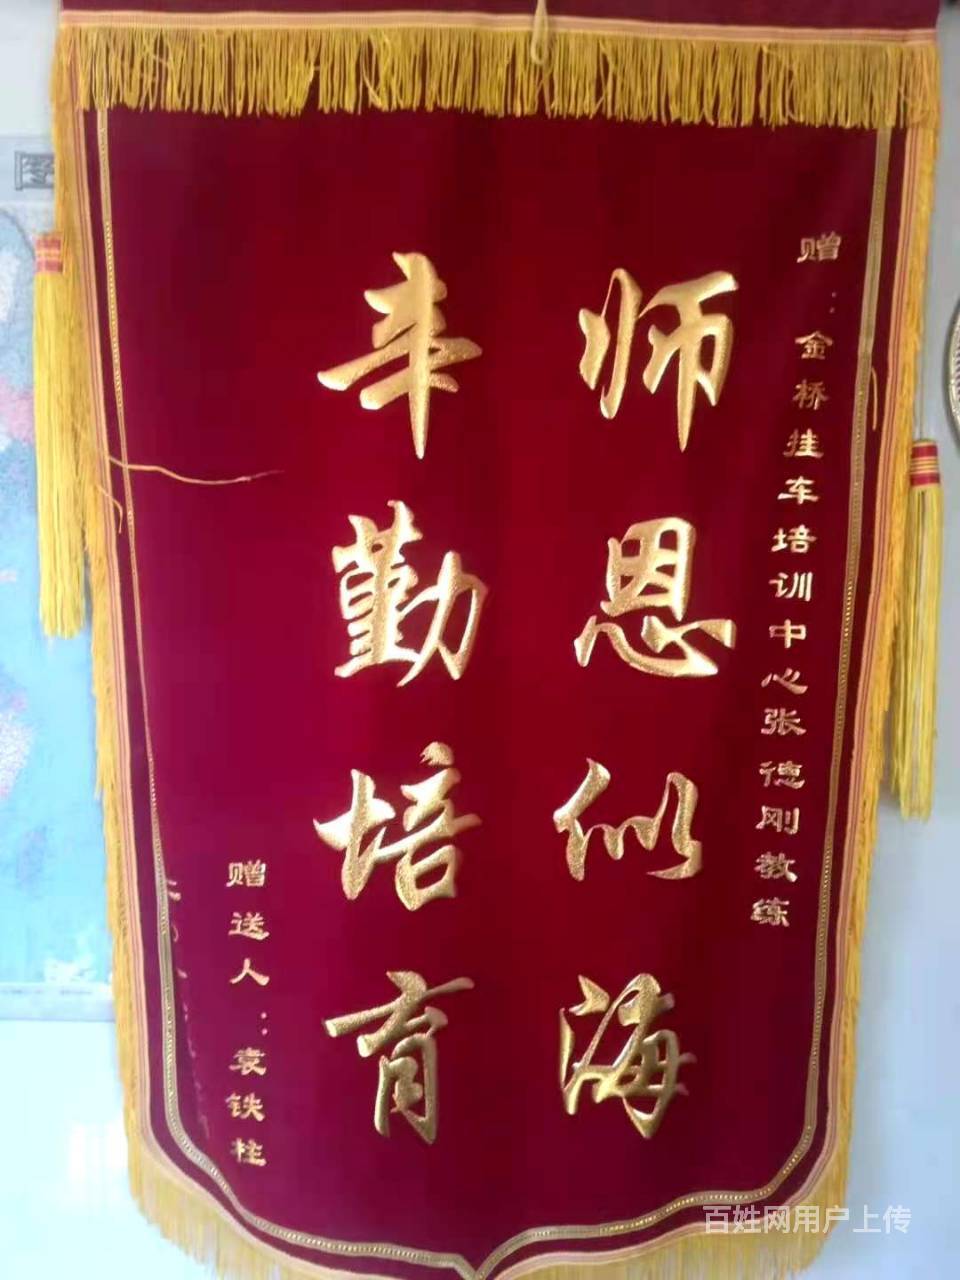 赠：金桥挂车培训中心张德刚教练
师恩似海
辛勤培育
赠送人：袁铁柱
图
百姓网用户上传